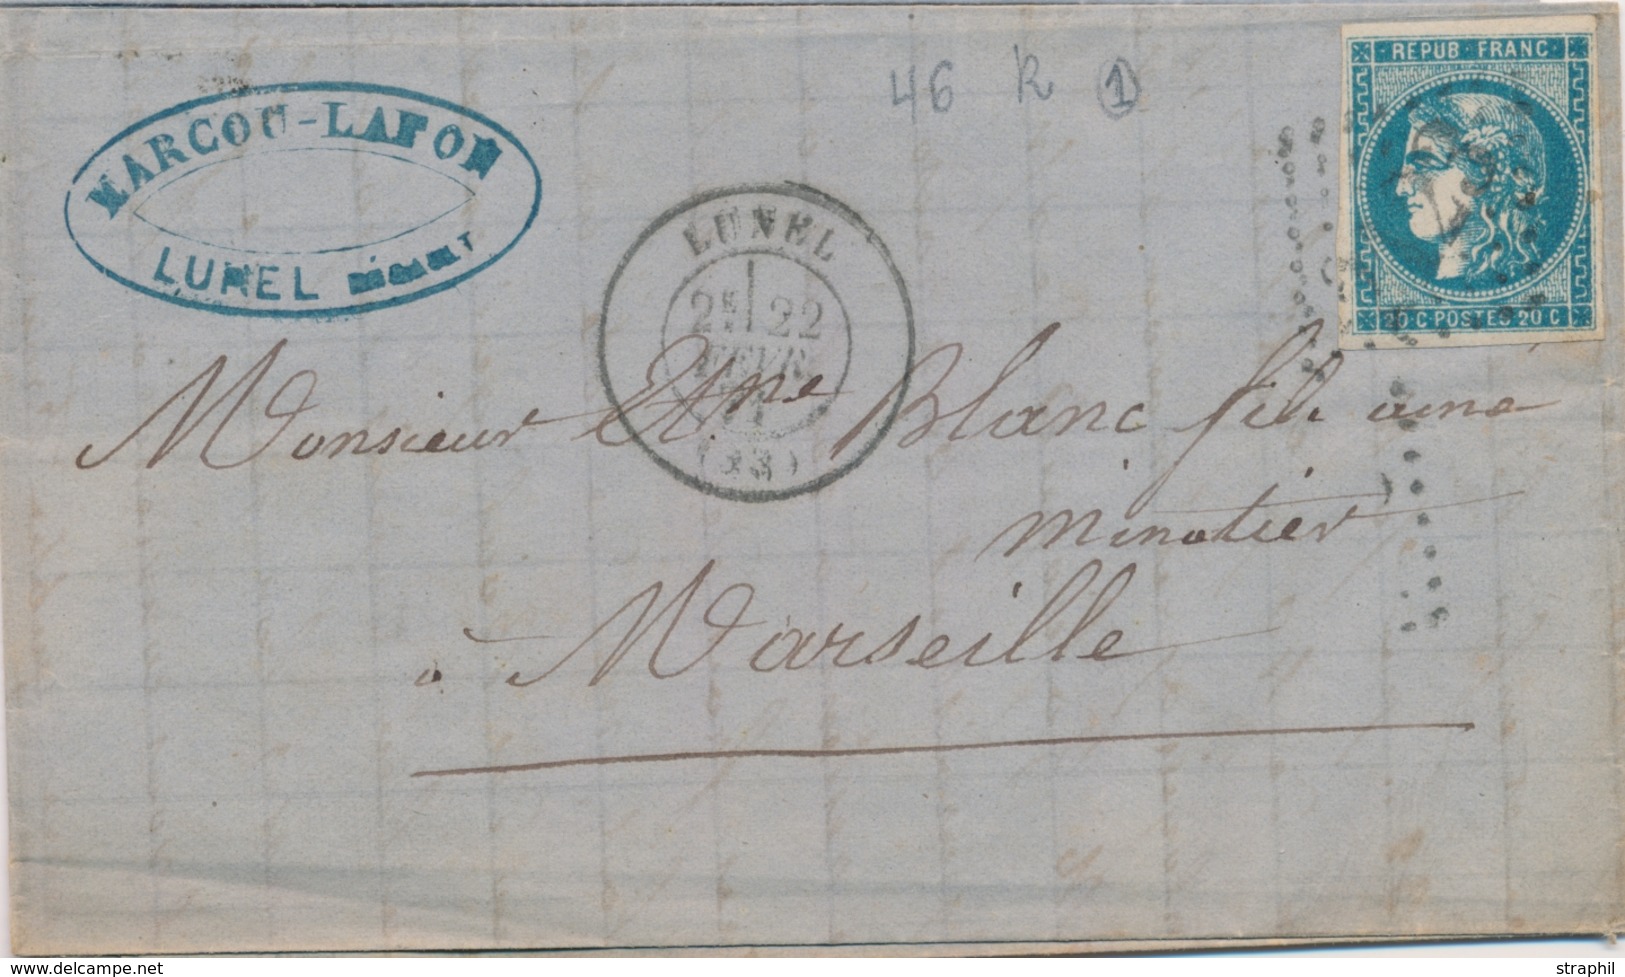 46 R 1
REPUB FRANC
20 C POSTES 20 C
MARCOU-LAFON
LUNEL HÉRAULT
LUNEL
2E 22
FEVR.
71
(33)
Monsieur Etne Blanc fils ainé
minotier
à Marseille
straphil delcampe.net